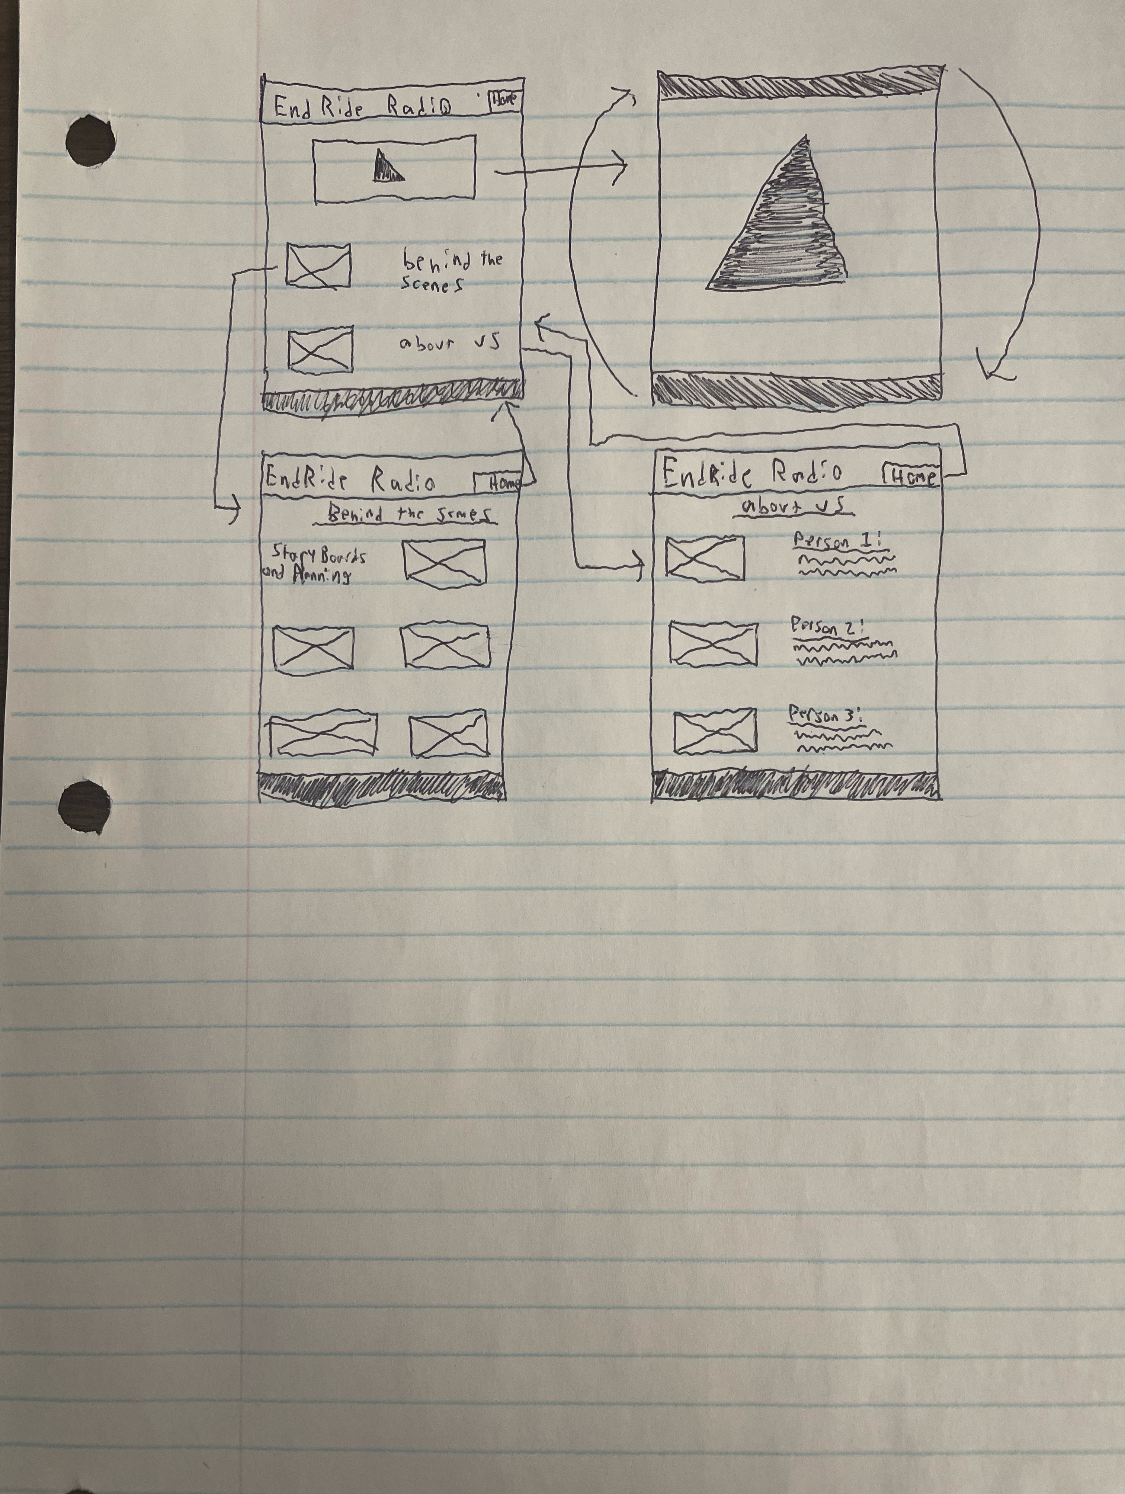 End Ride Radio Home
behind the
scenes
about us
EndRide Radio Home
Behind the scenes
Story Boards
and Planning
EndRide Radio Home
about us
Person 1:
Person 2:
Person 3: